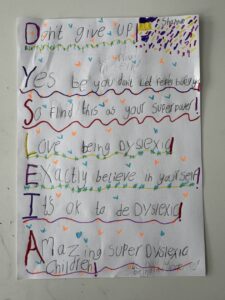 Don't give up!
Yes be you don't let fear
So find this as your Super power!
Love being DYSlexia!
Exactly believe in yourself!
It's ok to be DYSlexia!
Amazing SUPER DYSlexia
children!